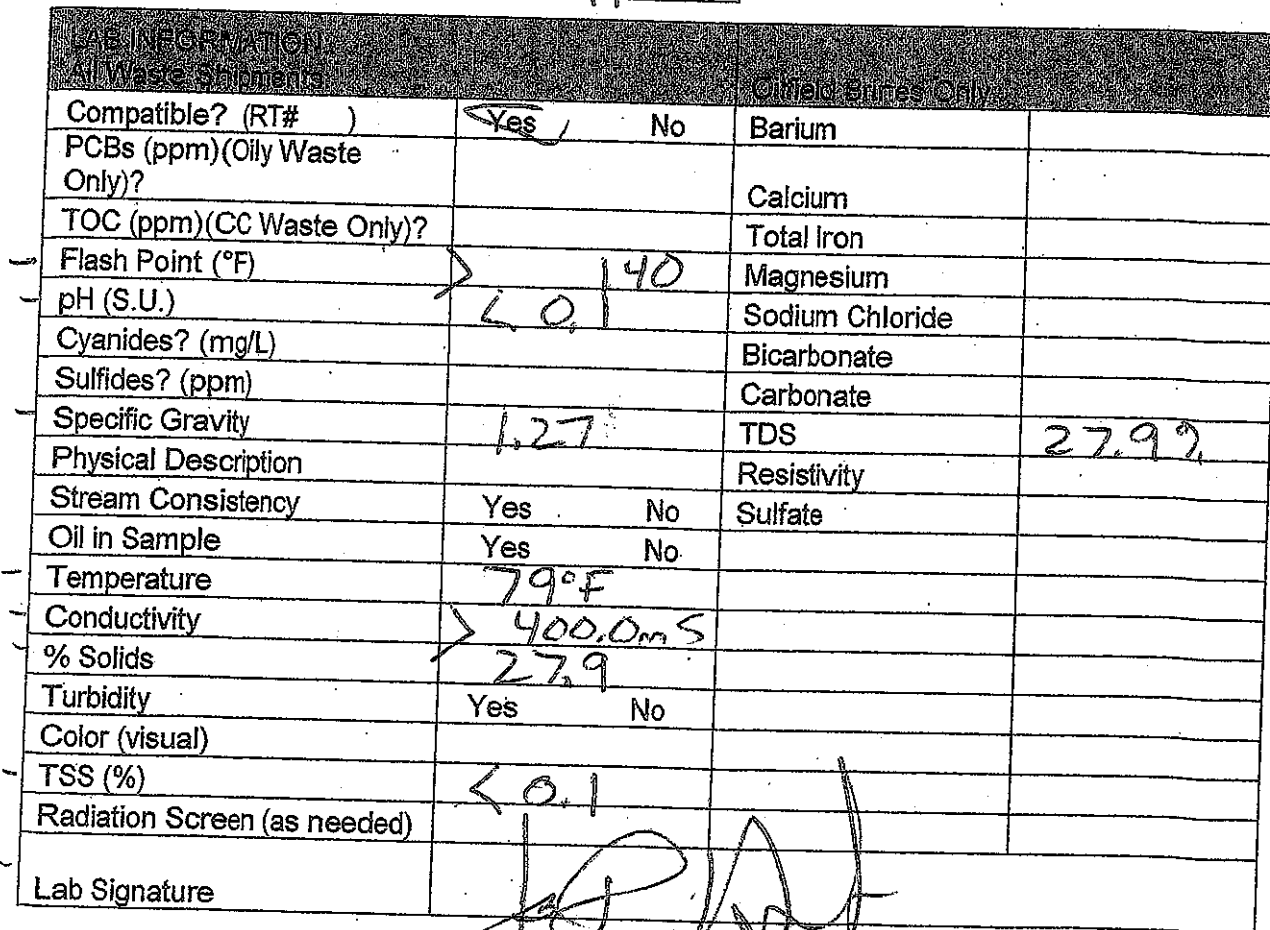 LAB INFORMATION
All Waste Shipments Oilfield Brines Only
Compatible? (RT# ) Yes No Barium
PCBs (ppm)(Oily Waste
Only)? Calcium
TOC (ppm)(CC Waste Only)? Total Iron
Flash Point (°F) > 140 Magnesium
pH (S.U.) < 0.1 Sodium Chloride
Cyanides? (mg/L) Bicarbonate
Sulfides? (ppm) Carbonate
Specific Gravity 1.27 TDS 27.9%
Physical Description Resistivity
Stream Consistency Yes No Sulfate
Oil in Sample Yes No
Temperature 79°F
Conductivity > 400.0mS
% Solids 27.9
Turbidity Yes No
Color (visual)
TSS (%) < 0.1
Radiation Screen (as needed)
Lab Signature